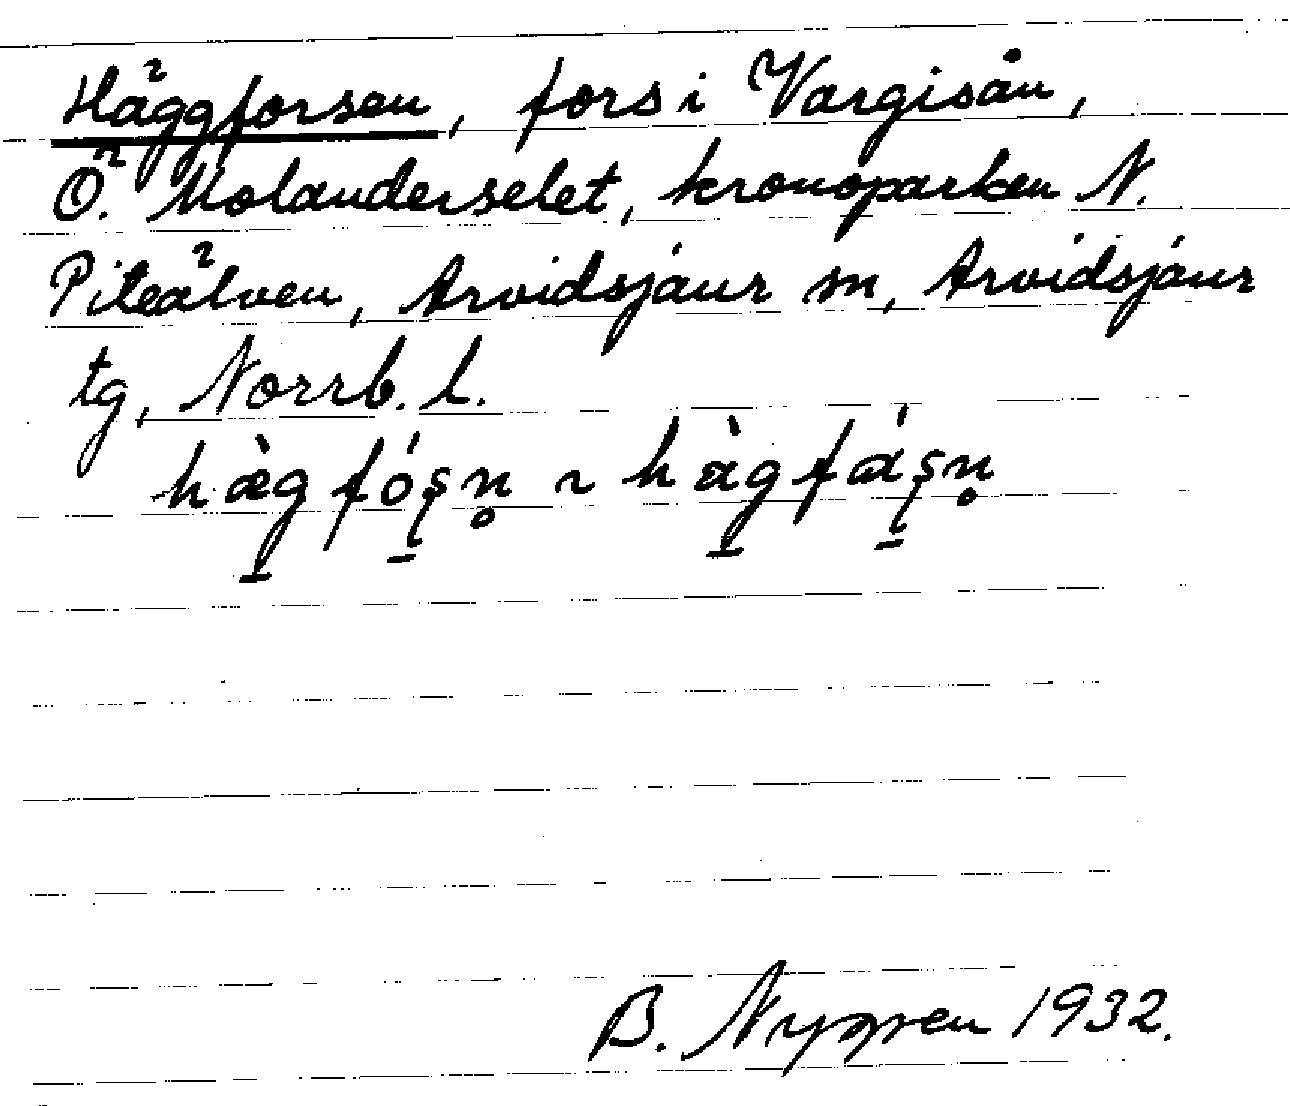 Häggforsen, fors i Vargisån,
Ö. Molanderselet, kronoparken N.
Piteälven, Arvidsjaur sn, Arvidsjaurs
tg, Norrb. l.
B. Nygren 1932.